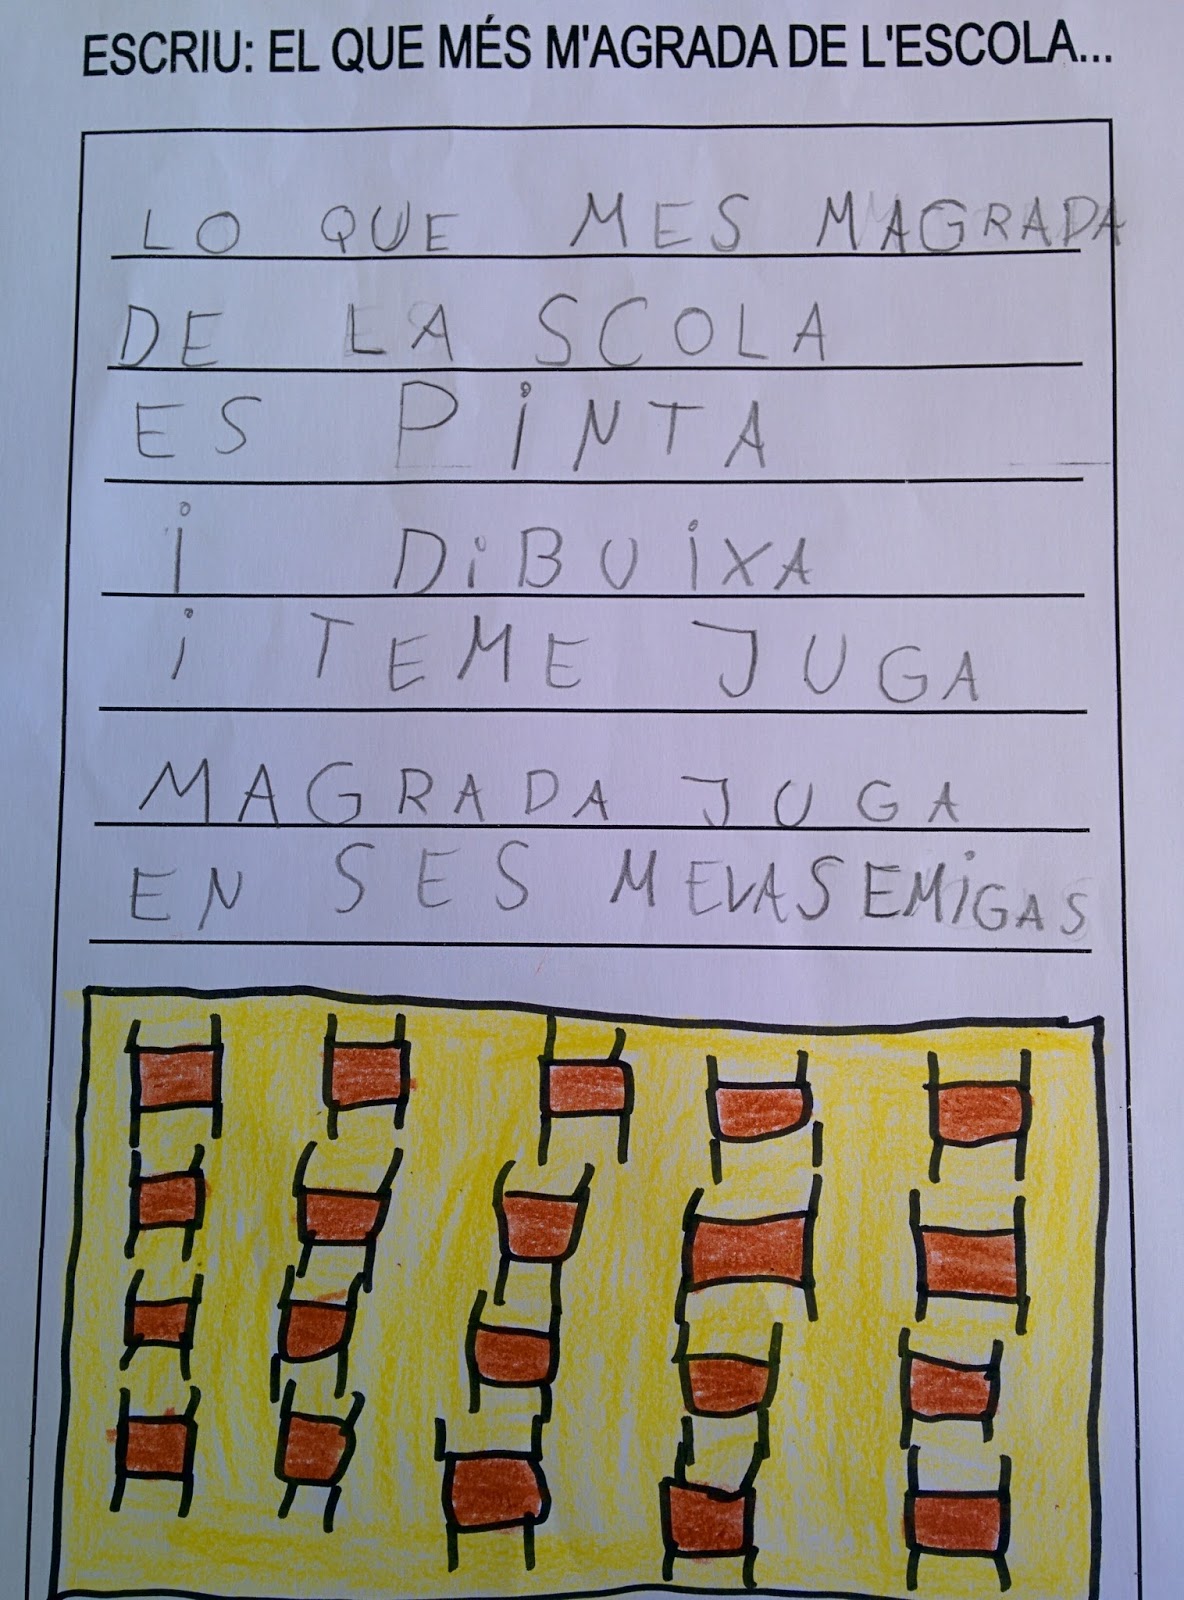 ESCRIU: EL QUE MÉS M'AGRADA DE L'ESCOLA...
LO QUE MES MAGRADA
DE LA SCOLA
ES PiNTA
i DiBUiXA
i TEME JUGA
MAGRADA JUGA
EN SES MEVAS EMiGAS